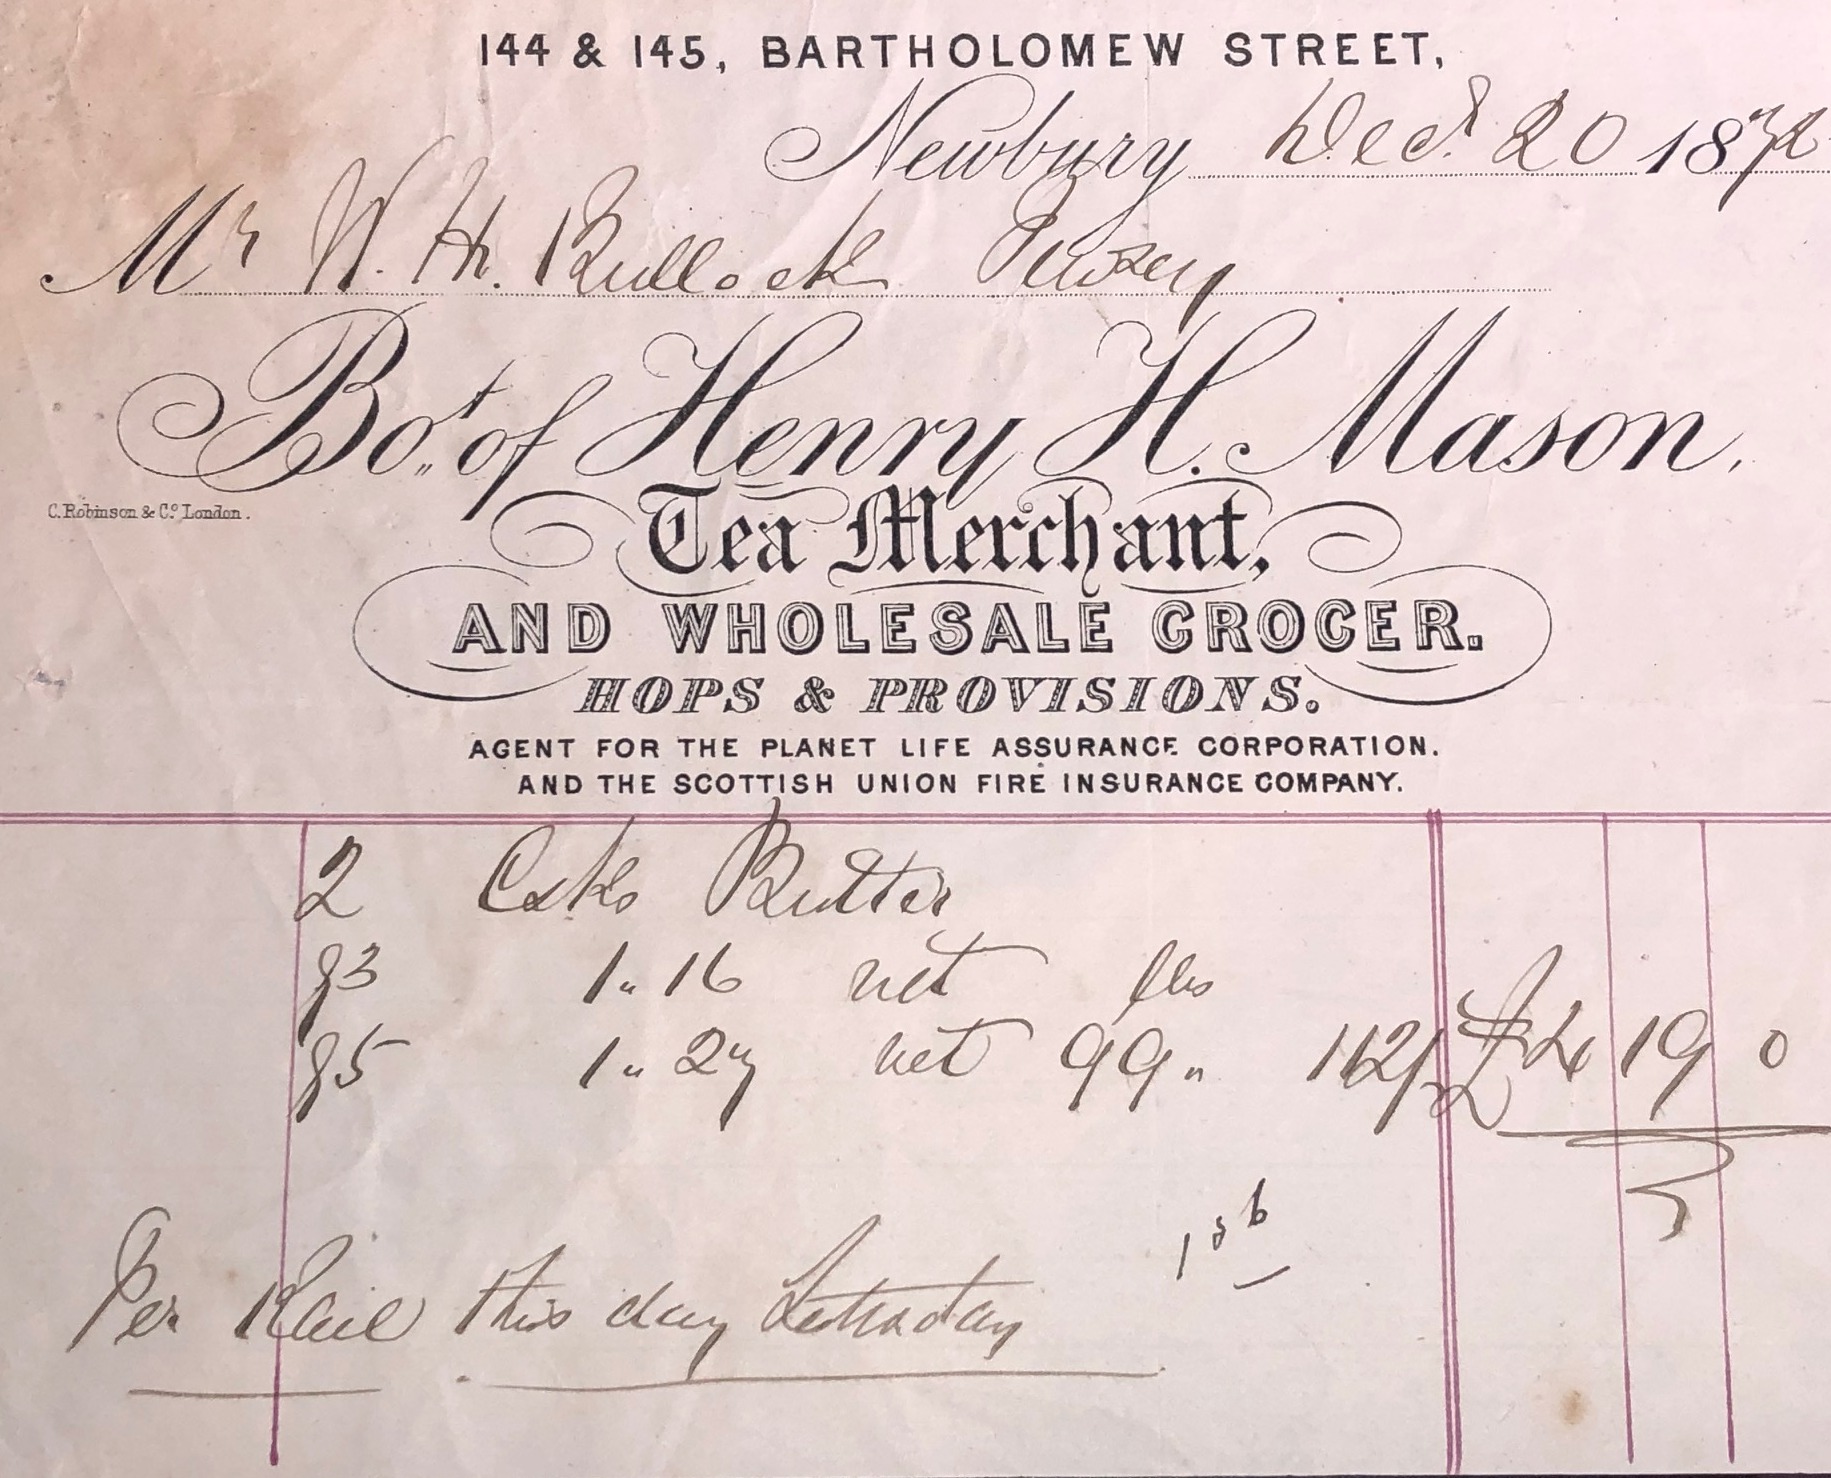 144 & 145, BARTHOLOMEW STREET,
Newbury Decr 20 1872
Mr W. H. Bullock Pewsey
Bot of Henry H. Mason.
C. Robinson & Co. London.
Tea Merchant,
AND WHOLESALE GROCER.
HOPS & PROVISIONS.
AGENT FOR THE PLANET LIFE ASSURANCE CORPORATION.
AND THE SCOTTISH UNION FIRE INSURANCE COMPANY.
2 Csks Butter
93 1" 16 net lbs
95 1" 27 net 99" 112/ £4 19 0
Per Rail this day